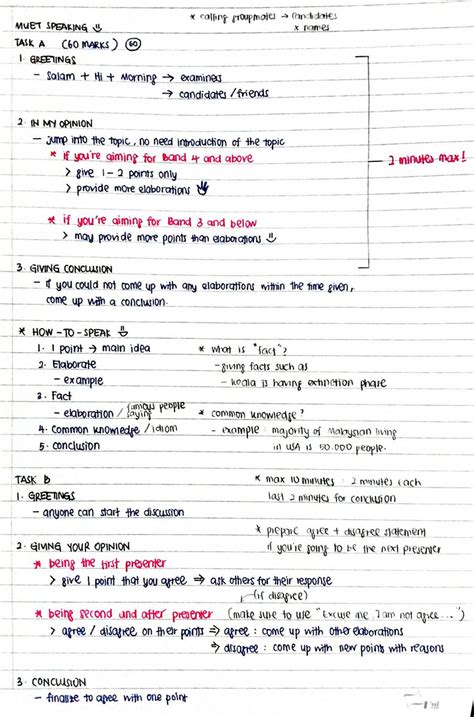 * calling groupmates → candidates
x names
MUET SPEAKING
TASK A (60 MARKS) 60
1. GREETINGS
- Salam + Hi + Morning → examiners
→ candidates / friends
2. IN MY OPINION
- jump into the topic, no need introduction of the topic
* if you're aiming for Band 4 and above
> give 1-2 points only
> provide more elaborations
2 minutes max!
* if you're aiming for Band 3 and below
> may provide more points than elaborations
3. GIVING CONCLUSION
- if you could not come up with any elaborations within the time given,
come up with a conclusion.
* HOW-TO-SPEAK
1. 1 point → main idea
2. Elaborate
- example
3. Fact
- elaboration / famous people saying
4. Common knowledge / idiom
5. conclusion
* what is "fact"?
- giving facts such as
- koala is having extinction phase
* common knowledge?
- example : majority of Malaysian living
in USA is 50.000 people.
TASK B
1. GREETINGS
- anyone can start the discussion
* max 10 minutes : 2 minutes each
last 2 minutes for conclusion
* prepare agree + disagree statement
if you're going to be the next presenter
2. GIVING YOUR OPINION
* being the first presenter
> give 1 point that you agree ⇒ ask others for their response
(if disagree)
* being second and after presenter (make sure to use "Excuse me I am not agree...")
> agree / disagree on their points ⇒ agree : come up with other elaborations
⇒ disagree : come up with new points with reasons
3. CONCLUSION
- finalize to agree with one point